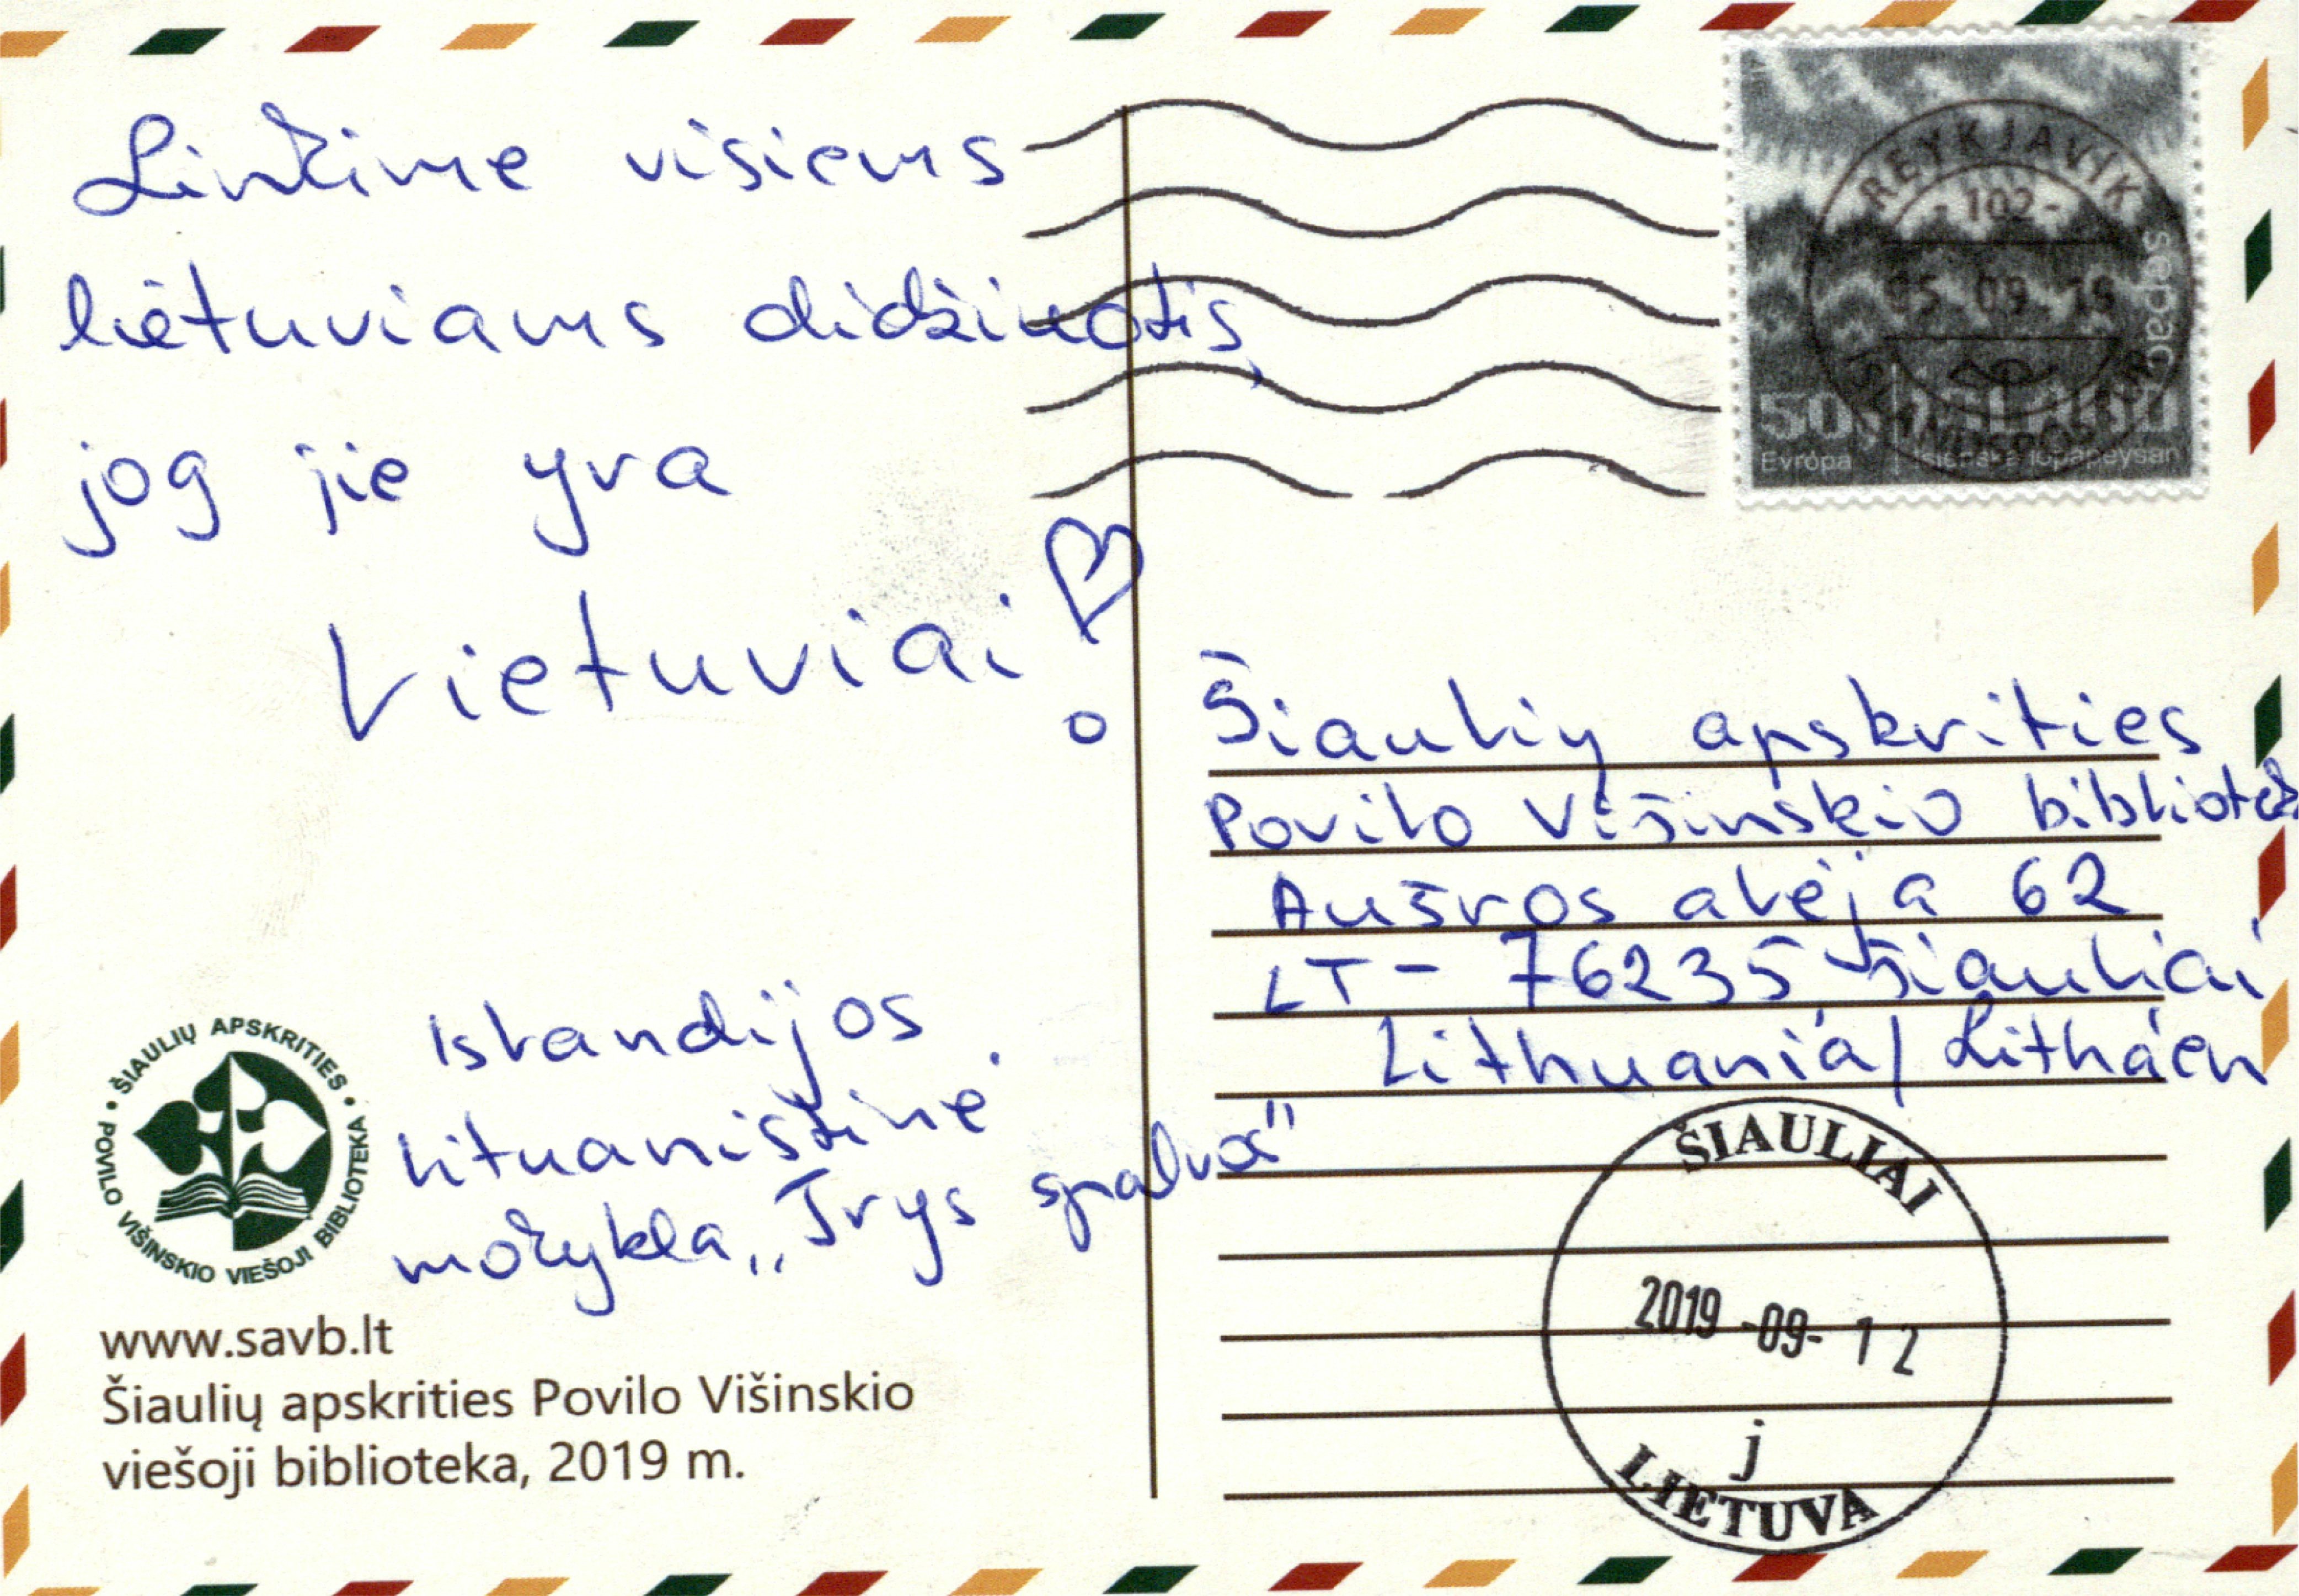 Linkime visiems
lietuviams didžiuotis,
jog jie yra
Lietuviai
Islandijos
lituanistinė
mokykla „Trys spalvos"
ŠIAULIŲ APSKRITIES
POVILO VIŠINSKIO VIEŠOJI BIBLIOTEKA
www.savb.lt
Šiaulių apskrities Povilo Višinskio
viešoji biblioteka, 2019 m.
REYKJAVÍK
-102-
05 09 19
ÍSLANDSPÓSTUR
sepac
50g ISLAND
Evrópa íslenska lopapeysan
Šiaulių apskrities
Povilo Višinskio bibliotek
Aušros alėja 62
LT-76235 Šiauliai
Lithuania/Litháen
ŠIAULIAI
2019-09-12
j
LIETUVA